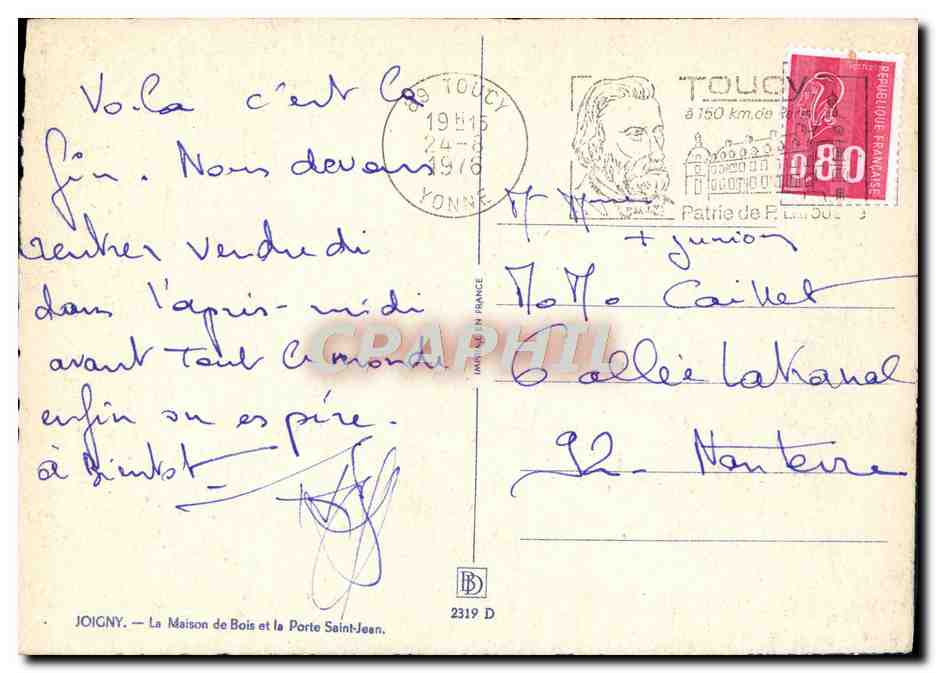 Voila c'est la
fin. Nous devons
rentrer vendredi
dans l'après-midi
avant tout le monde
enfin on espère.
à Bientôt
89 TOUCY
19H15
24-8
1976
YONNE
TOUCY
à 150 km. de Paris
Patrie de P. Larousse
REPUBLIQUE FRANÇAISE
0,80
+ junior
MoMo Caillet
6 allée Lakanal
92 - Nanterre
IMPRIMÉ EN FRANCE
CPAPHIL
BD
2319 D
JOIGNY. — La Maison de Bois et la Porte Saint-Jean.